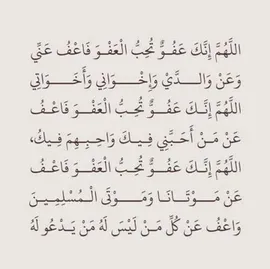 اللَّهُمَّ إِنَّكَ عَفُوٌّ تُحِبُّ الْعَفْوَ فَاعْفُ عَنِّي
وَعَنْ وَالِـدَيَّ وَإِخْـوَانِي وَأَخَـوَاتِي
اللَّهُمَّ إِنَّكَ عَفُوٌّ تُحِبُّ الْعَفْوَ فَاعْفُ
عَنْ مَنْ أَحَبَّنِي فِيـكَ وَاحِبِـهِـمَ فِيـكَ،
اللَّهُمَّ إِنَّـكَ عَفُـوٌّ تُحِبُّ الْعَفْـوَ فَاعْـفُ
عَنْ مَـوْتَـانَـا وَمَـوْتَى الْـمُسْلِمِـيـنَ
وَاعْفُ عَنْ كُلِّ مَـنْ لَيْسَ لَهُ مَنْ يَـدْعُو لَهُ